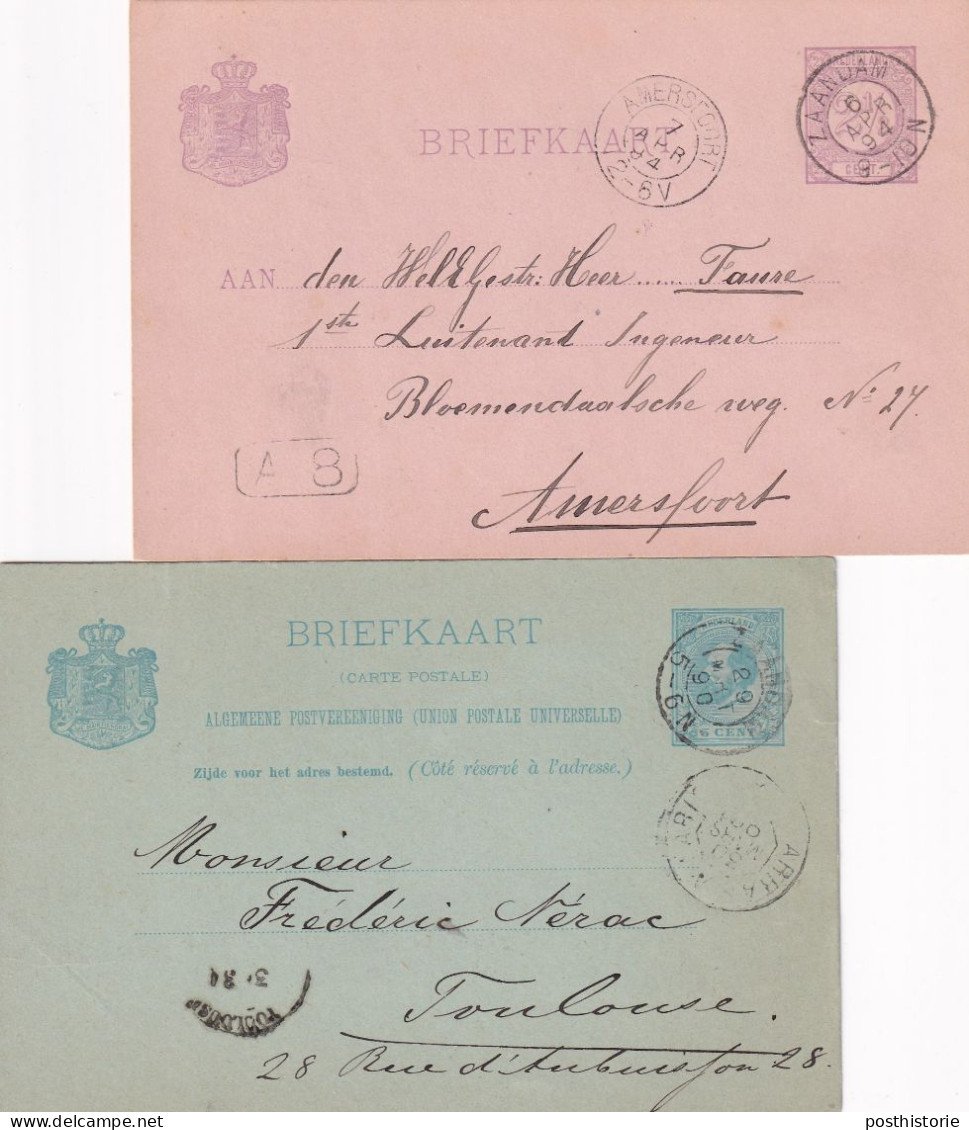 BRIEFKAART
AMERSFOORT
7
APR
94
12-6V
ZAANDAM
6
APR
94
9-10N
CENT.
AAN den WelEdGestr: Heer ...... Faure
1ste Luitenand Ingeneur
Bloemendaalsche weg. No: 27.
A 8
Amersfoort
BRIEFKAART
(CARTE POSTALE)
ALGEMEENE POSTVEREENIGING (UNION POSTALE UNIVERSELLE)
Zijde voor het adres bestemd. (Côté réservé à l'adresse.)
NEDERLAND
6 CENT
29
90
5-6N
Monsieur
Frédéric Nérac
Toulouse.
28 Rue d'Aubuisson 28.
posthistorie